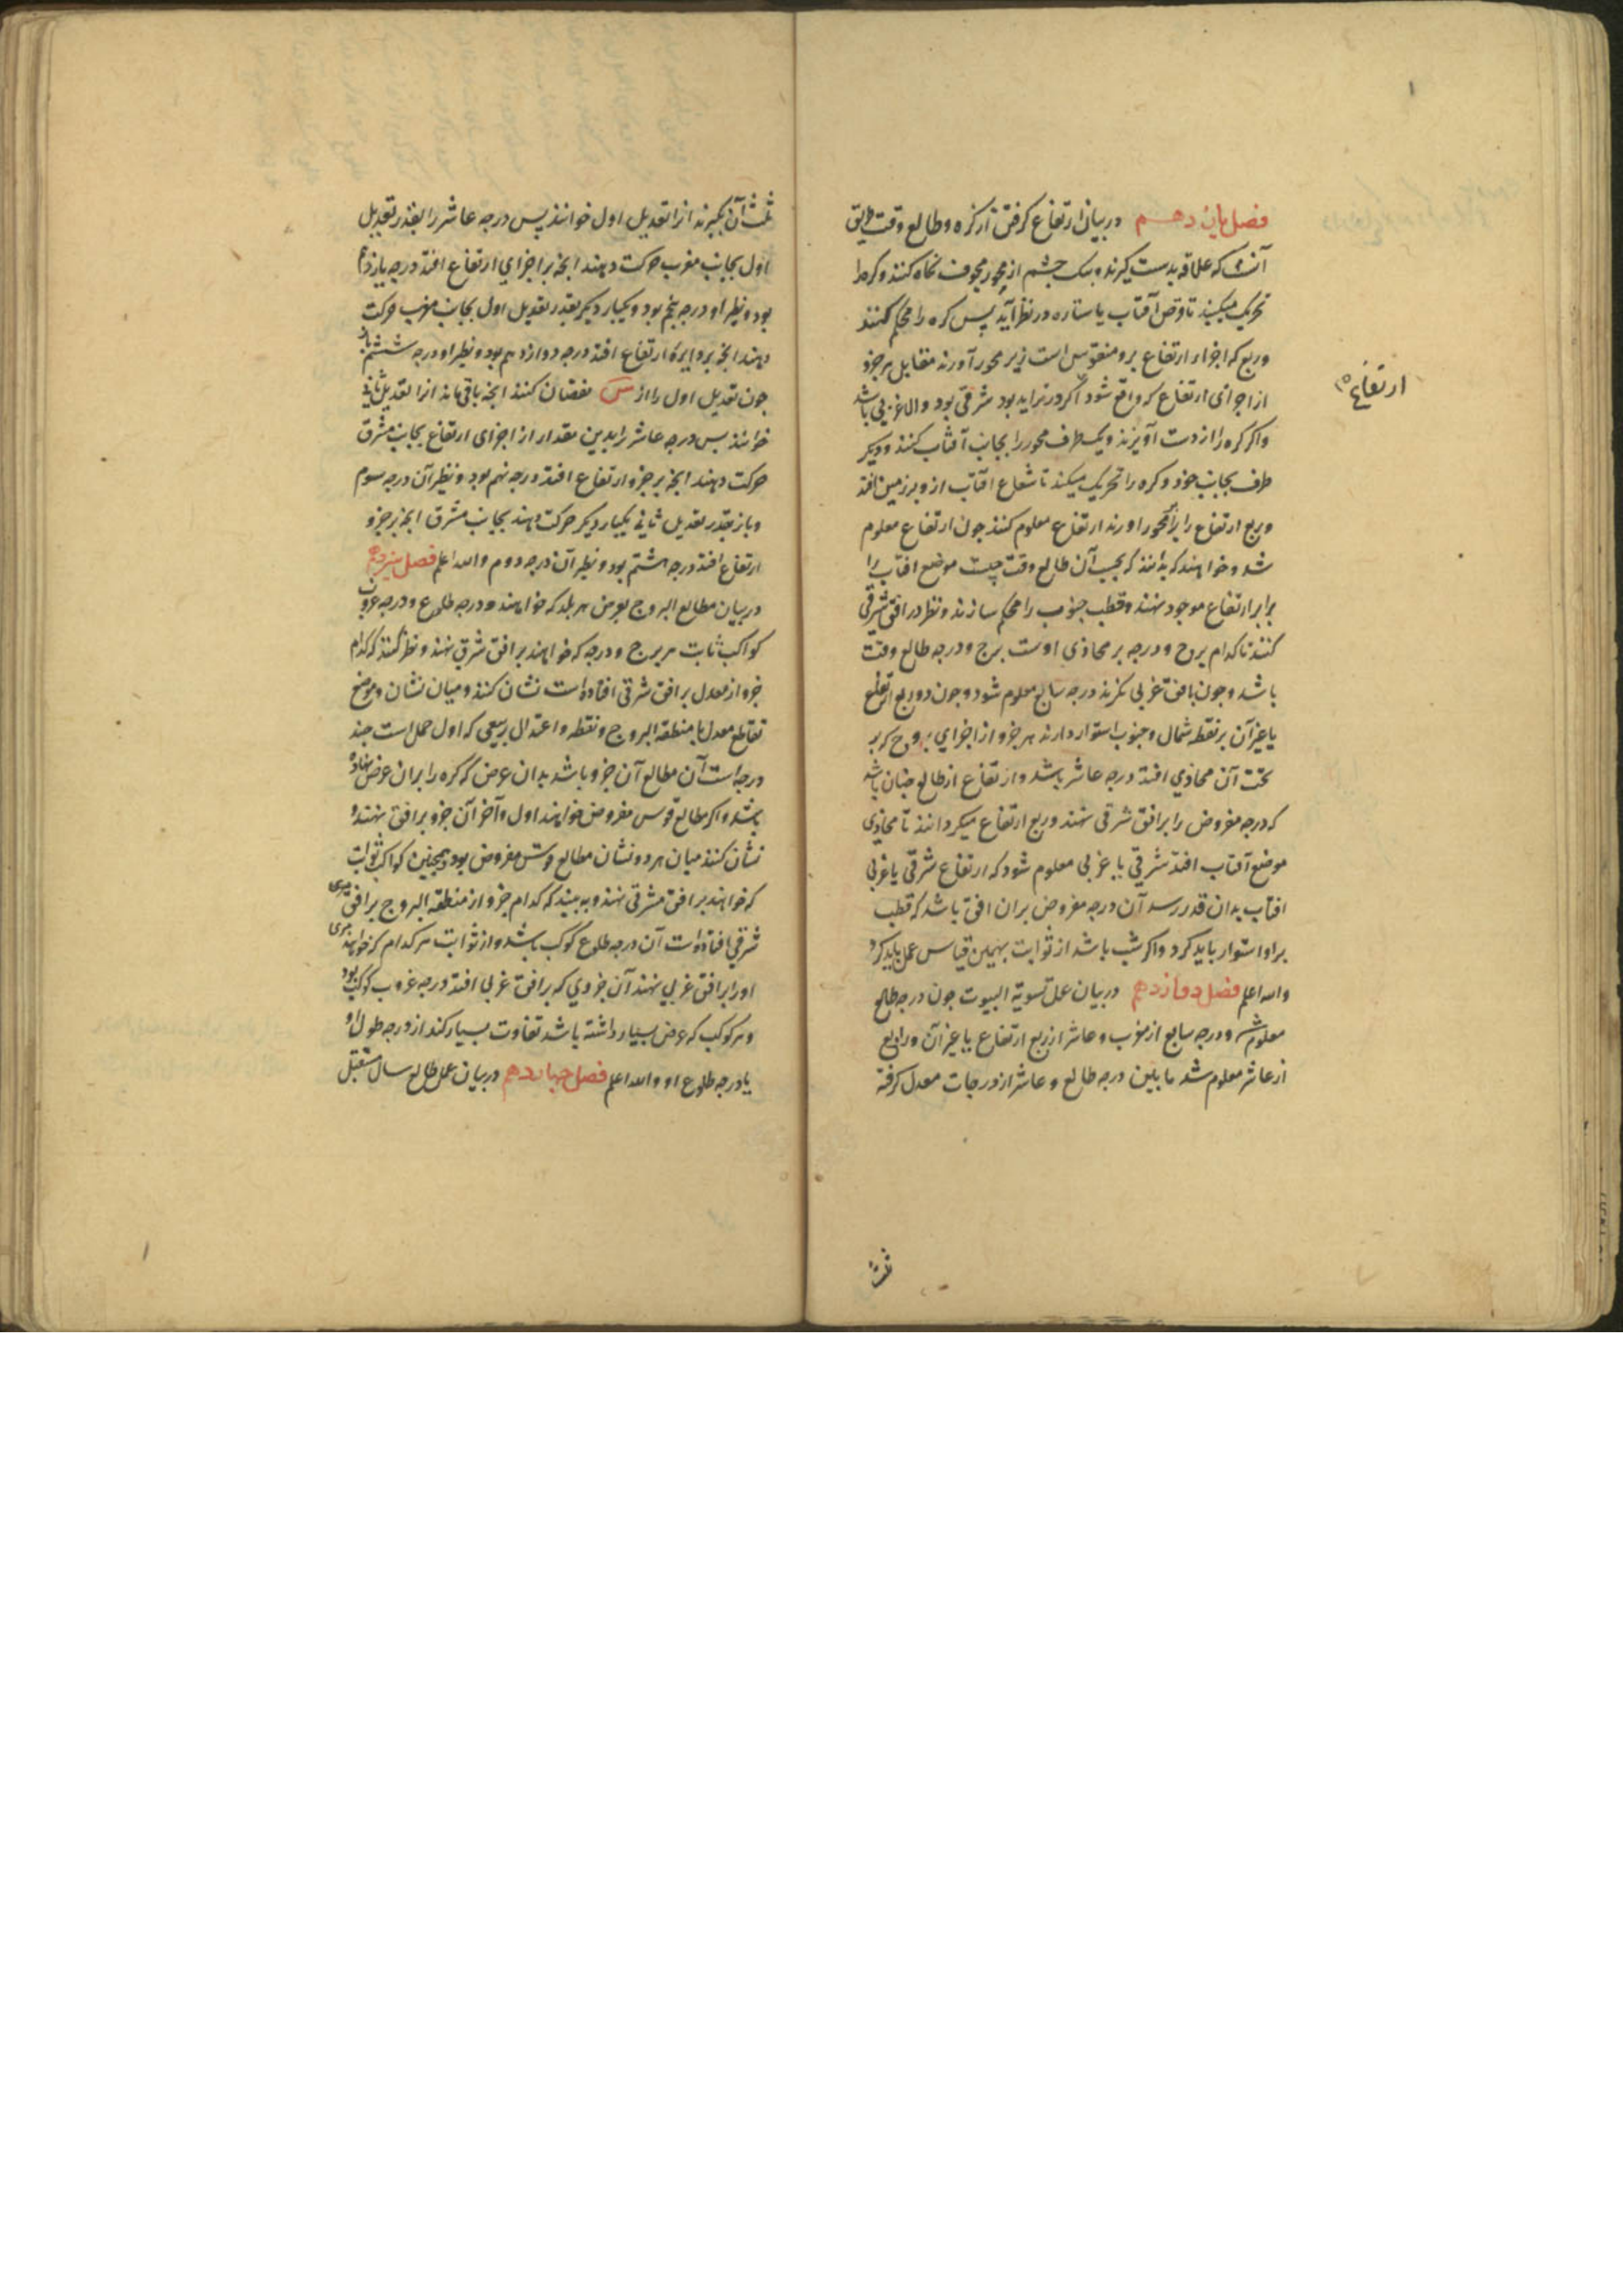 فصل یازدهم در بیان ارتفاع کرفتن از کره و طالع وقت طریق
آنست که علاقه بدست کیرند و بیک جشم از محور مجوف نکاه کنند و کره را
تحریک میکنند تا قرص آفتاب یا ستاره در نظر آید پس کره را محکم کنند
و ربع که اجزاء ارتفاع برو منقوس است زیر محور آورند مقابل هر جزو
از اجزای ارتفاع که واقع شود اکر در تزاید بود شرقی بود و الا غربی باشد
ارتفاع
و اکر کره را از دست آویزند و یک طرف محور را بجانب آفتاب کنند و دیکر
طرف بجانب خود و کره را تحریک میکنند تا شعاع افتاب ازو بر زمین افتد
و ربع ارتفاع را زیر محور اورند ارتفاع معلوم کنند جون ارتفاع معلوم
شد و خواهند که بدانند که بحسب آن طالع وقت جیست موضع افتاب را
برابر ارتفاع موجود نهند و قطب جنوب را محکم سازند و نظر در افق شرقی
کنند تا کدام برج و درجه بر محاذی اوست برج و درجه طالع وقت
باشد و جون بافق غربی نکرند درجه سابع معلوم شود و جون دو ربع ارتفاع
یا غیر آن بر نقطه شمال و جنوب استوار دارند هر جزو از اجزای بروج که بر
تحت آن محاذی افتد درجه عاشر باشد و ارتفاع از طالع جنان باشد
که درجه مفروض را بر افق شرقی نهند و ربع ارتفاع میکردانند تا محاذی
موضع آفتاب افتد شرقی یا غربی معلوم شود که ارتفاع شرقی یا غربی
افتاب بدان قدر رسد آن درجه مفروض بران افق باشد که قطب
براو استوار باید کرد و اکر شب باشد از ثوابت بهمین قیاس عمل باید کرد
والله اعلم فصل دوازدهم در بیان عمل تسویة البیوت جون درجه طالع
معلوم شد و درجه سابع از مغرب و عاشر از ربع ارتفاع یا غیر آن و رابع
از عاشر معلوم شد مابین درجه طالع و عاشر از درجات معدل کرفته
ثلث
ثلث آن بکیرند انرا تعدیل اول خوانند پس درجه عاشر را بقدر تعدیل
اول بجانب مغرب حرکت دهند انجه بر اجزای ارتفاع افتد درجه یازدهم
بود و نظیر او درجه پنجم بود و یکبار دیکر بقدر تعدیل اول بجانب مغرب حرکت
دهند انجه بر دایره ارتفاع افتد درجه دوازدهم بود و نظیر او درجه ششم باز
جون تعدیل اول را از س نقصان کنند انجه باقی ماند انرا تعدیل ثانی
خوانند پس درجه عاشر را بدین مقدار از اجزای ارتفاع بجانب مشرق
حرکت دهند انجه بر جزو ارتفاع افتد درجه نهم بود و نظیر آن درجه سوم
و باز بقدر تعدیل ثانی یکبار دیکر حرکت دهند بجانب مشرق انجه بر جزو
ارتفاع افتد درجه هشتم بود و نظیر آن درجه دوم والله اعلم فصل سیزدهم
در بیان مطالع البروج بعرض هر بلد که خواهند و درجه طلوع و درجه غروب
کواکب ثابت هر برج و درجه که خواهند بر افق شرقی نهند و نظر کنند که کدام
جزو از معدل بر افق شرقی افتاده است نشان کنند و میان نشان و موضع
تقاطع معدل با منطقة البروج و نقطه و اعتدال ربیعی که اول حمل است جند
درجه است آن مطالع آن جزو باشد بدان عرض که کره را بران عرض نهاده
باشد و اکر مطالع قوس مفروض خواهند اول و آخر آن جزو بر افق نهند و
نشان کنند میان هر دو نشان مطالع قوس مفروض بود و همجنین کواکب ثوابت
که خواهند بر افق مشرقی نهند و به بینند که کدام جزو از منطقة البروج بر افق
شرقی افتاده است آن درجه طلوع کوکب باشد و از ثوابت هر کدام که خواهند
اورا بر افق غربی نهند آن جزوی که بر افق غربی افتد درجه غروب کوکب بود
و هر کوکب که عرض بسیار داشته باشد تفاوت بسیار کند از درجه طول او
با درجه طلوع او والله اعلم فصل جهاردهم در بیان عمل طالع سال مستقبل